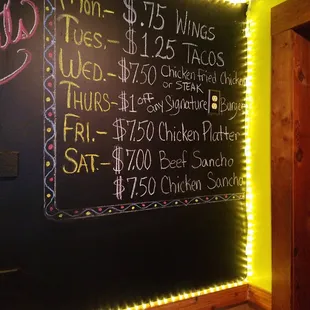 Mon.- $.75 Wings
Tues.- $1.25 Tacos
Wed.- $7.50 Chicken fried Chicken
or STEAK
Thurs- $1 off any Signature Burger
Fri.- $7.50 Chicken Platter
Sat.- $7.00 Beef Sancho
$7.50 Chicken Sancho